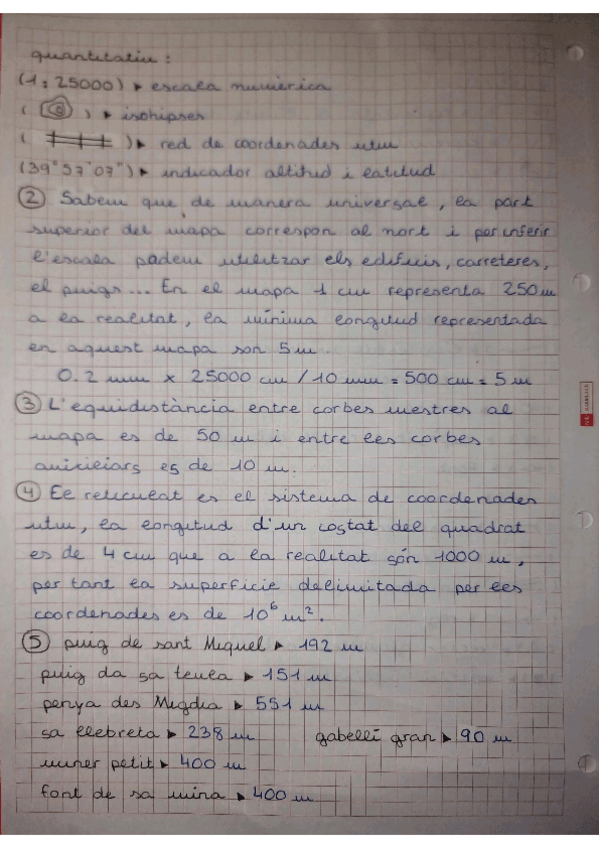 quantitatiu :
(1 : 25000) ▸ escala numèrica
( ) ▸ isohipses
( ) ▸ red de coordenades utm
(39° 57' 07") ▸ indicador altitud i latitud
② Sabem que de manera universal, la part
superior del mapa correspon al nort i per inferir
l'escala podem utilitzar els edificis, carreteres,
el puigs... En el mapa 1 cm representa 250 m
a la realitat, la mínima longitud representada
en aquest mapa son 5 m.
0.2 mm x 25000 cm / 10 mm = 500 cm = 5 m
③ L'equidistància entre corbes mestres al
mapa es de 50 m i entre les corbes
auxiliars es de 10 m.
④ El reticulat es el sistema de coordenades
utm, la longitud d'un costat del quadrat
es de 4 cm que a la realitat són 1000 m,
per tant la superfície delimitada per les
coordenades es de 10⁶ m².
⑤ puig de sant Miquel ▸ 192 m
puig da sa teula ▸ 151 m
penya des Migdia ▸ 551 m
sa llebreta ▸ 238 m gabellí gran ▸ 90 m
muner petit ▸ 400 m
font de sa mina ▸ 400 m